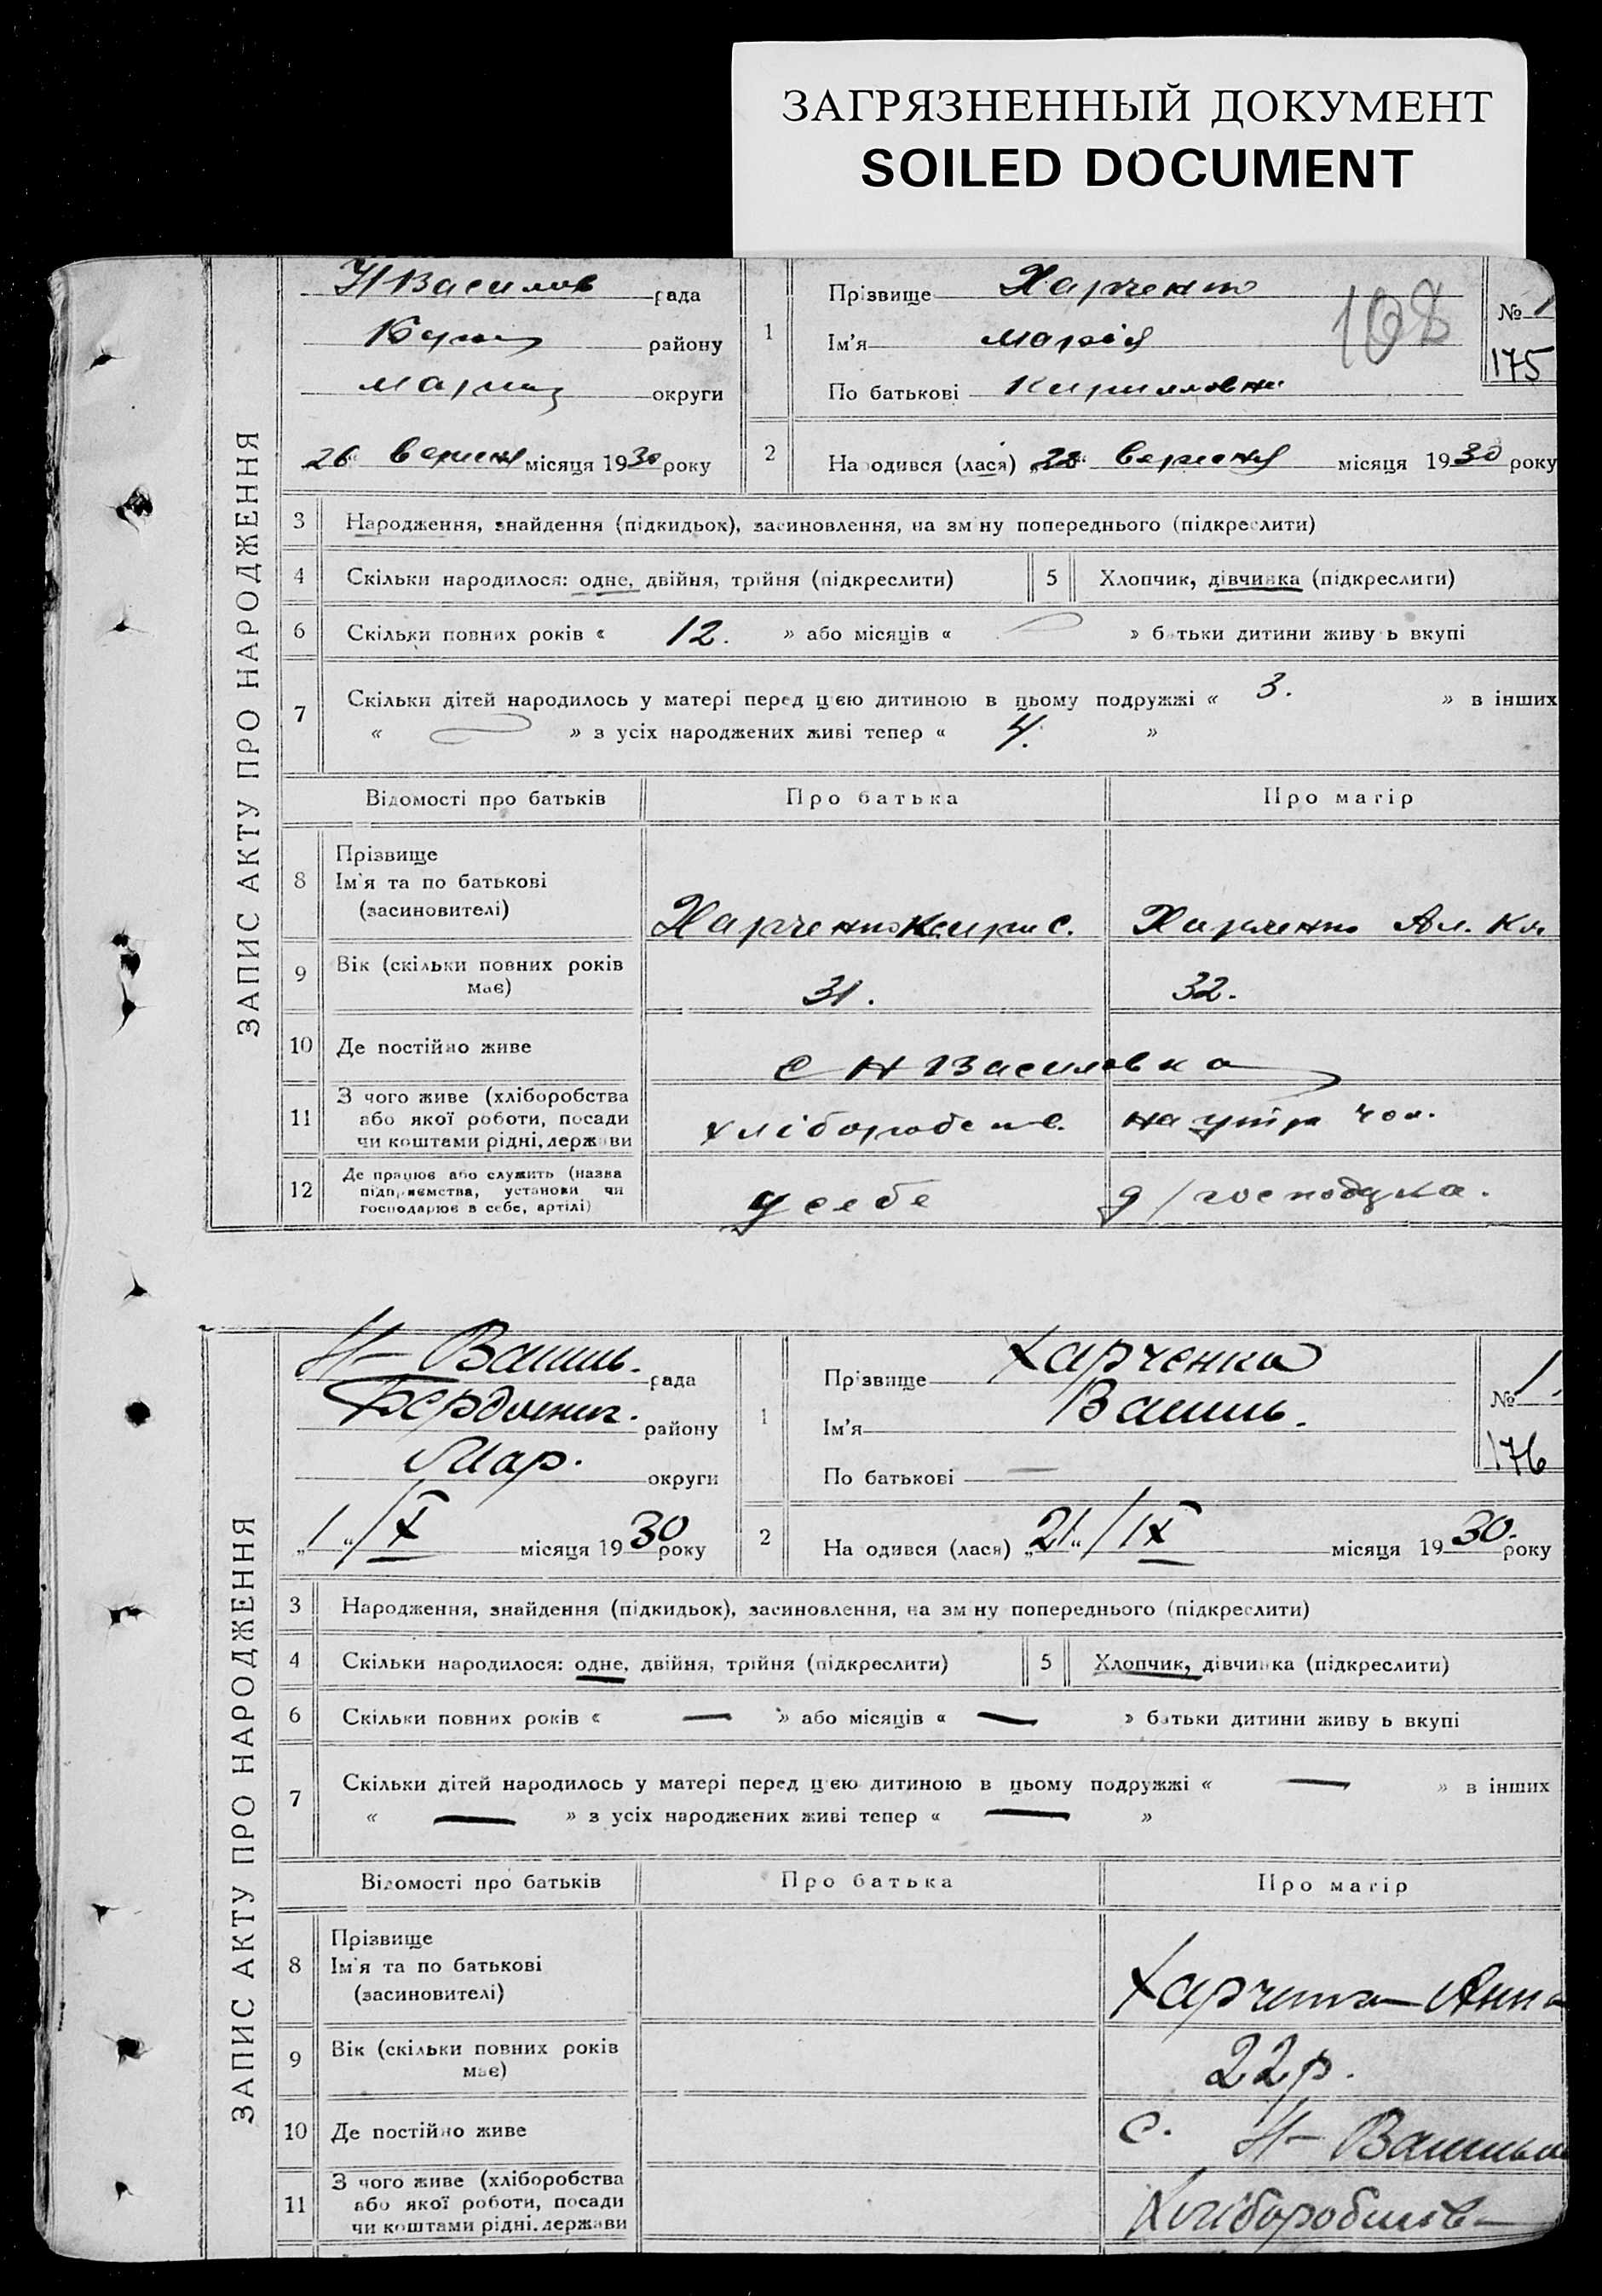 ЗАГРЯЗНЕННЫЙ ДОКУМЕНТ
SOILED DOCUMENT
ЗАПИС АКТУ ПРО НАРОДЖЕННЯ
Н Василів рада
району
округи
26 вересня місяця 1930 року
1
Прізвище Харченко
Ім'я Марія
По батькові Кирилловна
108
№ 1
175
2
Народився (лася) „28“ вересня місяця 1930 року
3 Народження, знайдення (підкидьок), засиновлення, на зміну попереднього (підкреслити)
4 Скільки народилося: одне, двійня, трійня (підкреслити)
5 Хлопчик, дівчинка (підкреслити)
6 Скільки повних років « 12. » або місяців « » батьки дитини живуть вкупі
7 Скільки дітей народилось у матері перед цією дитиною в цьому подружжі « 3. » в інших
« » з усіх народжених живі тепер « 4. »
Відомості про батьків Про батька Про матір
8 Прізвище
Ім'я та по батькові
(засиновителі)
Харченко Кирил С. Харченко Ал. Кл
9 Вік (скільки повних років
має)
31. 32.
10 Де постійно живе
с Н Василевка
11 З чого живе (хліборобства
або якої роботи, посади
чи коштами рідні, держави
хлібороб на утр чол.
12 Де працює або служить (назва
підприємства, установи чи
господарює в себе, артілі)
у себе д/господарка.
ЗАПИС АКТУ ПРО НАРОДЖЕННЯ
Н-Василь. рада
району
Мар. округи
„1“/X місяця 1930 року
1
Прізвище Харченко
Ім'я Василь.
По батькові —
№ 1.
176
2
Народився (лася) „21“/IX місяця 1930. року
3 Народження, знайдення (підкидьок), засиновлення, на зміну попереднього (підкреслити)
4 Скільки народилося: одне, двійня, трійня (підкреслити)
5 Хлопчик, дівчинка (підкреслити)
6 Скільки повних років « — » або місяців « — » батьки дитини живуть вкупі
7 Скільки дітей народилось у матері перед цією дитиною в цьому подружжі « — » в інших
« — » з усіх народжених живі тепер « — »
Відомості про батьків Про батька Про матір
8 Прізвище
Ім'я та по батькові
(засиновителі)
Харченко Анна
9 Вік (скільки повних років
має)
22 р.
10 Де постійно живе
с. Н-Васильев
11 З чого живе (хліборобства
або якої роботи, посади
чи коштами рідні, держави
Хліборобство